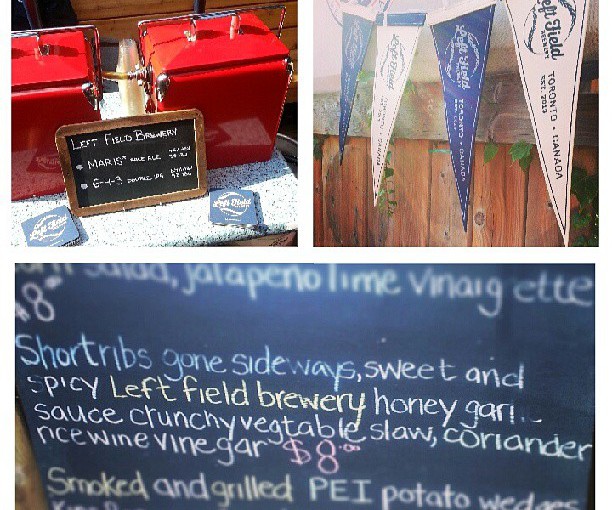 LEFT FIELD BREWERY
MARIS* PALE ALE
6-4-3 DOUBLE IPA
Left Field
Left Field
Left Field
BREWERY
TORONTO • CANADA
Left Field
BREWERY
TORONTO • CANADA
EST. 2013
salad, jalapeño lime vinaigrette
$8
Shortribs gone sideways, sweet and
spicy Left field brewery honey garlic
sauce crunchy vegtable slaw, coriander
rice wine vinegar $8.00
Smoked and grilled PEI potato wedges